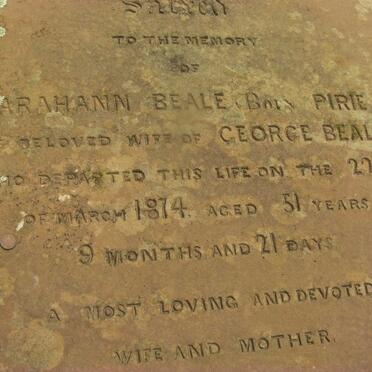 Sacred
TO THE MEMORY
OF
ARAHANN BEALE (Born PIRIE
BELOVED WIFE OF GEORGE BEAL
HO DEPARTED THIS LIFE ON THE 27
OF MARCH 1874. AGED 51 YEARS
9 MONTHS AND 21 DAYS
A MOST LOVING AND DEVOTED
WIFE AND MOTHER.